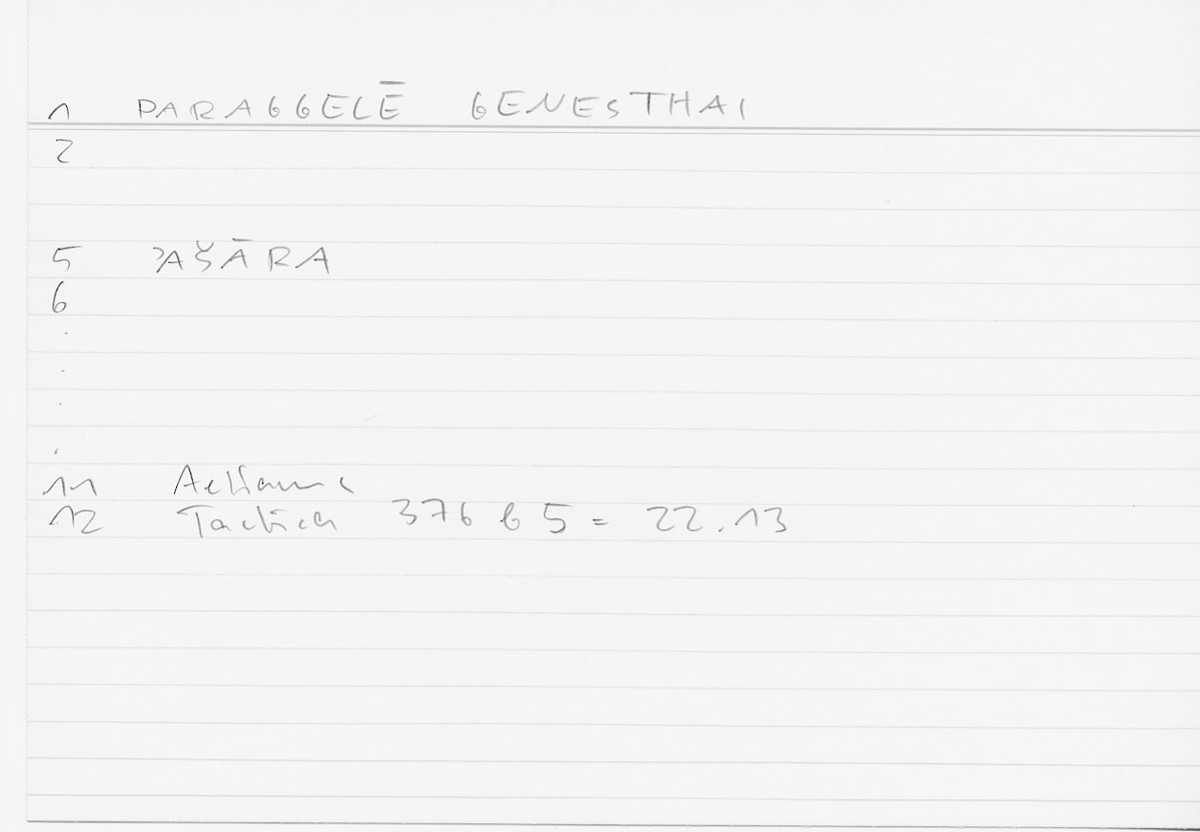 1 PARAGGELĒ GENESTHAI
2
5 ʾAŠĀRA
6
.
.
.
.
11 Aelianus
12 Tactica 376 b 5 = 22.13